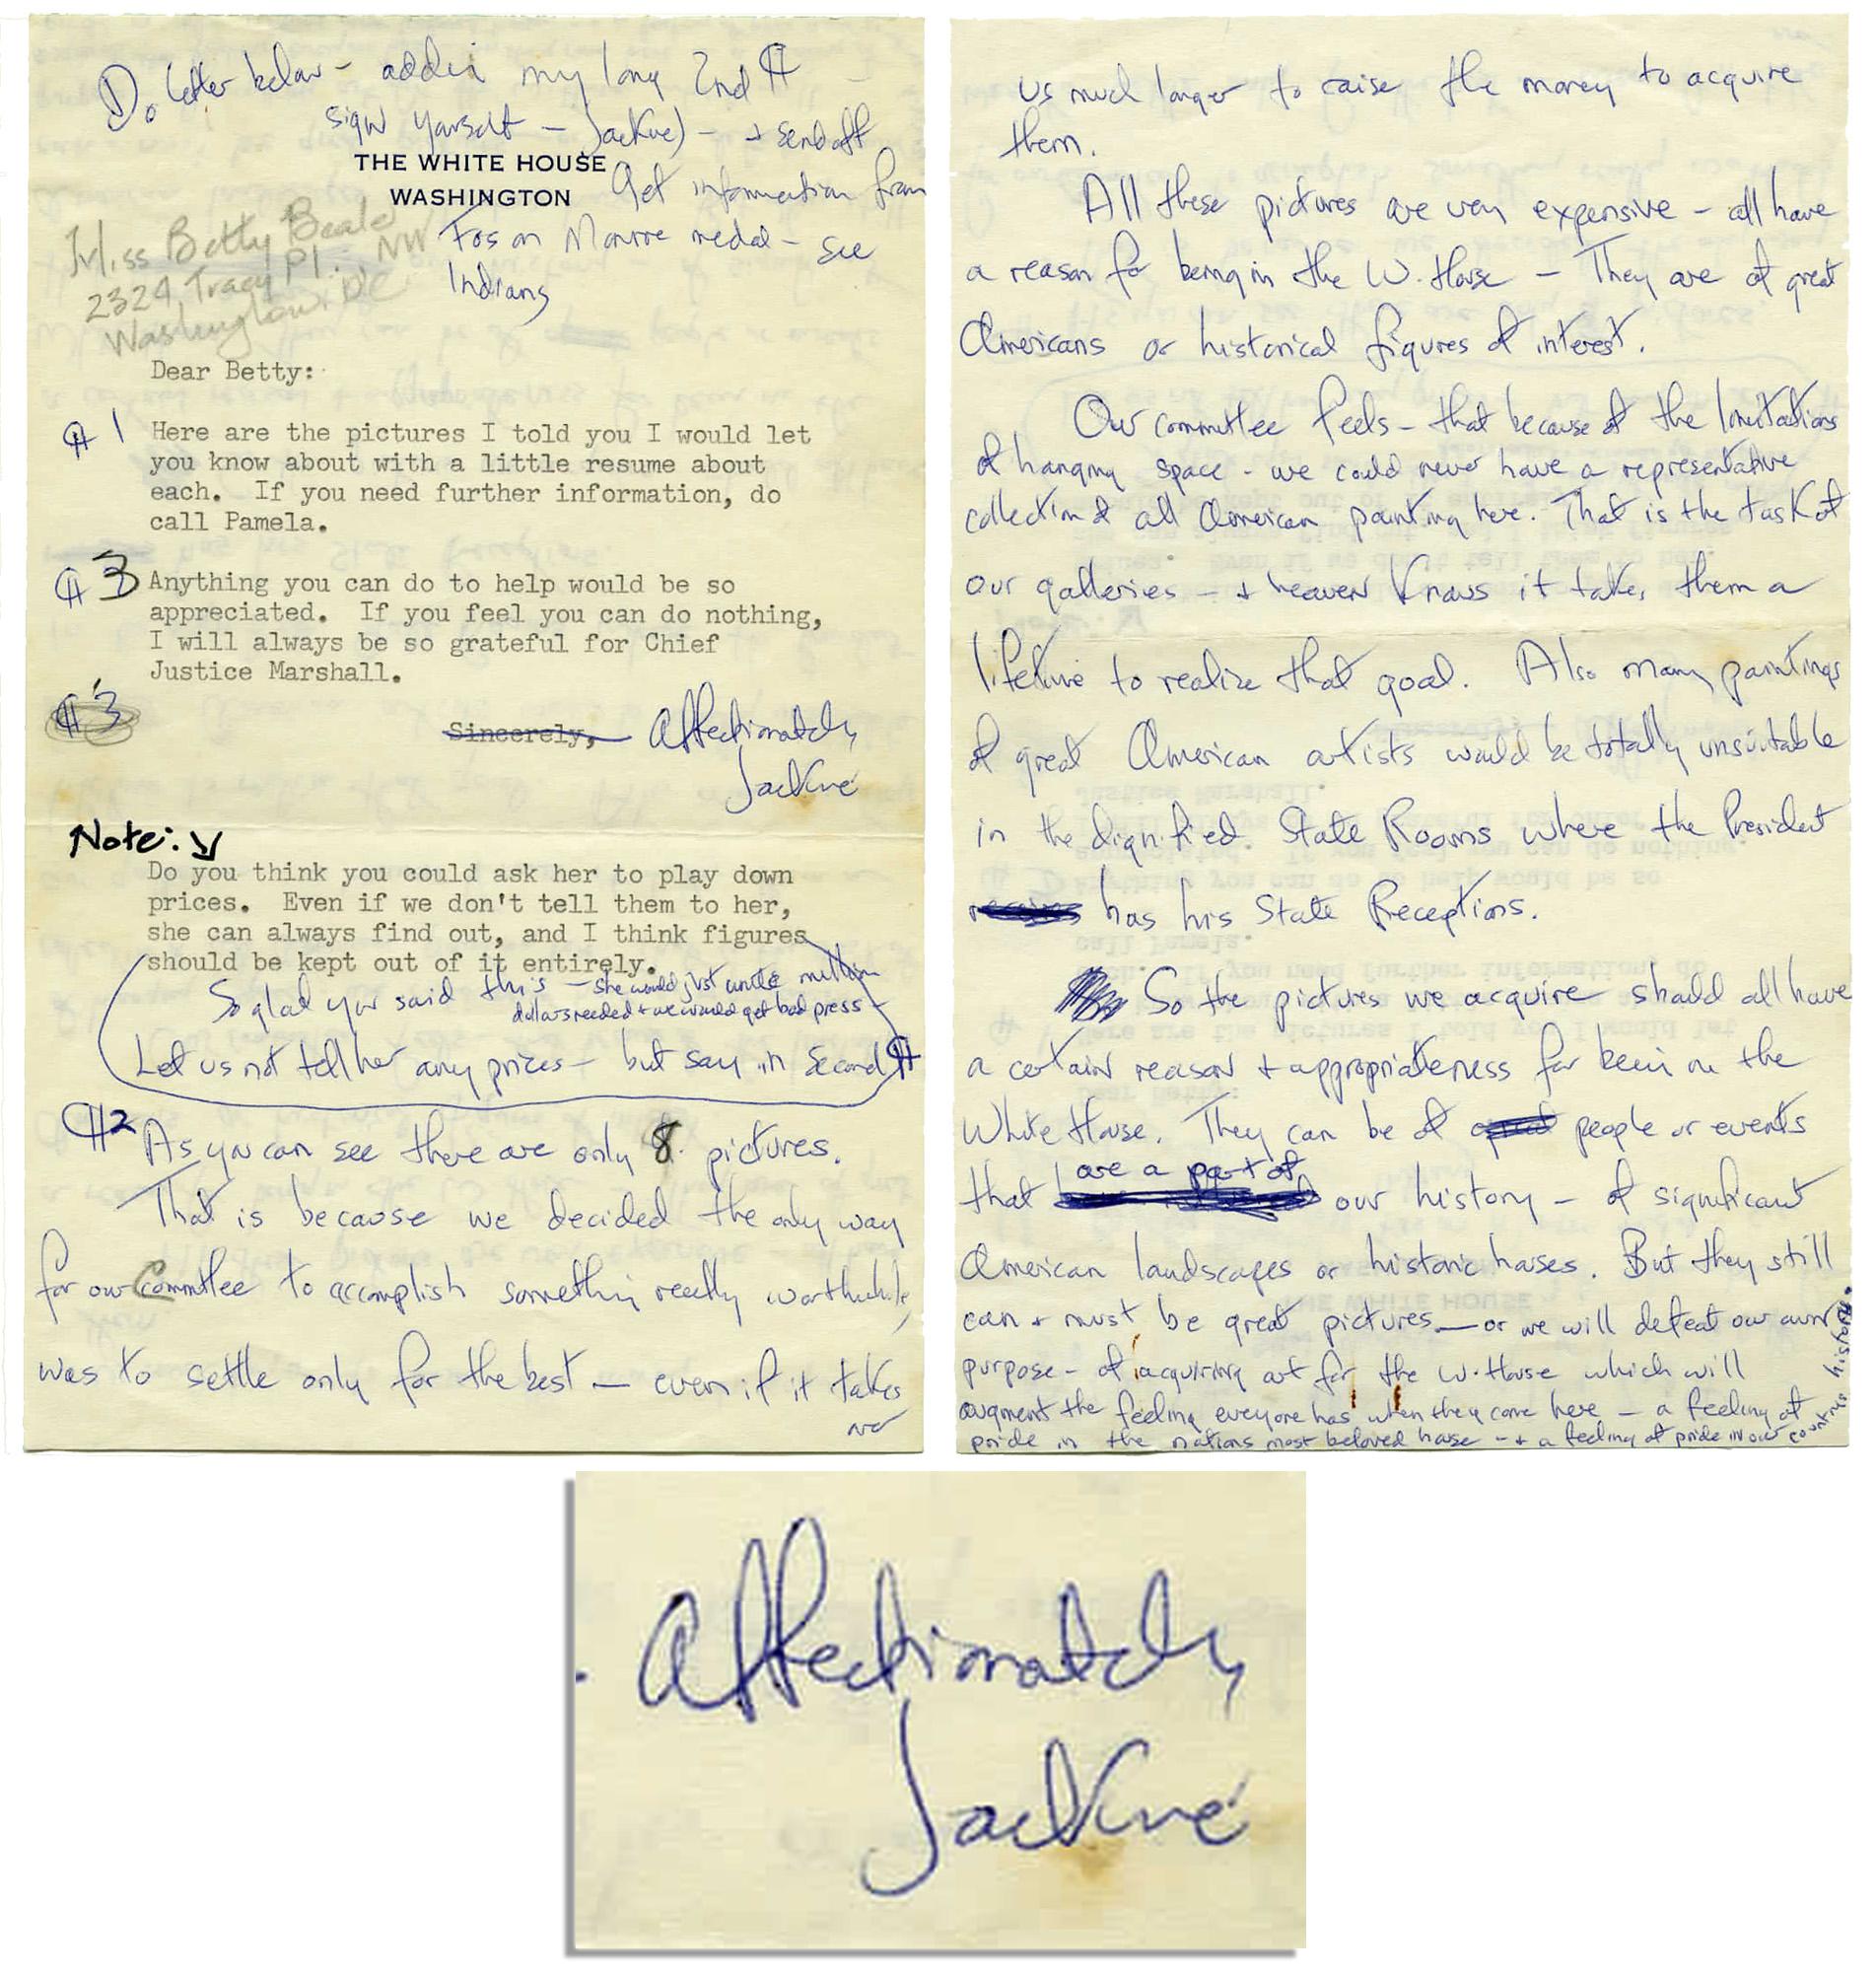 Do letter below – adding my long 2nd ¶
sign yourself – Jackie) – + send off
THE WHITE HOUSE
WASHINGTON
Get information from
Fos on Monroe medal – see
Indians
Miss Betty Beale
2324, Tracy Pl. NW
Washington, DC
Dear Betty:
¶ 1
Here are the pictures I told you I would let
you know about with a little resume about
each. If you need further information, do
call Pamela.
¶ 3
Anything you can do to help would be so
appreciated. If you feel you can do nothing,
I will always be so grateful for Chief
Justice Marshall.
¶ 3
Sincerely, Affectionately,
Jackie
Note:
Do you think you could ask her to play down
prices. Even if we don't tell them to her,
she can always find out, and I think figures
should be kept out of it entirely.
So glad you said this – she would just write million
dollars needed + we would get bad press –
Let us not tell her any prices – but say in second ¶
¶2 As you can see there are only 8 pictures.
That is because we decided the only way
for our Committee to accomplish something really worthwhile,
was to settle only for the best – even if it takes
us much longer to raise the money to acquire
them.
All these pictures are very expensive – all have
a reason for being in the W. House – They are of great
Americans or historical figures of interest.
Our committee feels – that because of the limitations
of hanging space – we could never have a representative
collection of all American painting here. That is the task of
our galleries – + heaven knows it takes them a
lifetime to realize that goal. Also many paintings
of great American artists would be totally unsuitable
in the dignified State Rooms where the President
has his State Receptions.
So the pictures we acquire should all have
a certain reason + appropriateness for being in the
White House. They can be of people or events
are a part of
that our history – of significant
American landscapes or historic houses. But they still
can + must be great pictures – or we will defeat our own
purpose – of acquiring art for the W. House which will
augment the feeling everyone has when they come here – a feeling of
pride in the nations most beloved house – + a feeling of pride in our countries history.
Affectionately,
Jackie